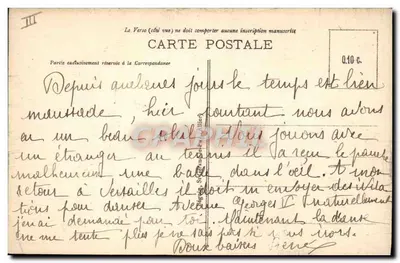 III
Le Verso (côté vue) ne doit comporter aucune inscription manuscrite
CARTE POSTALE
Partie exclusivement réservée à la Correspondance
0.10 c.
Depuis quelques jours le temps est bien
maussade, hier pourtant nous avons
eu un beau soleil. Nous jouons avec
un étranger au tennis il a reçu le pauvre
malheureux une balle dans l'oeil. A mon
retour à Versailles il doit m'envoyer des invita
tions pour danser Avenue Georges V naturellement
j'en ai demandé pour toi. Maintenant la danse
ne me tente plus je ne sais pas si nous irons.
Doux baisers Irène